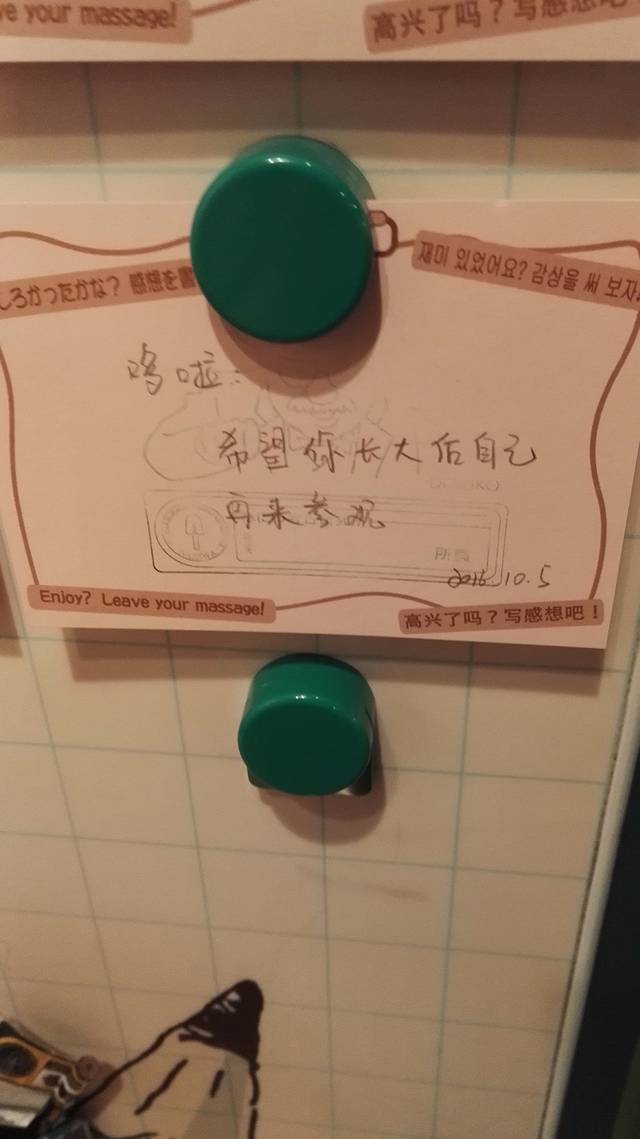 ve your massage!
高兴了吗？写感想吧
しろかったかな？ 感想を書
재미 있었어요? 감상을 써 보자
哆啦：
希望你长大后自己
再来参观
2016.10.5
Enjoy? Leave your massage!
高兴了吗？写感想吧！